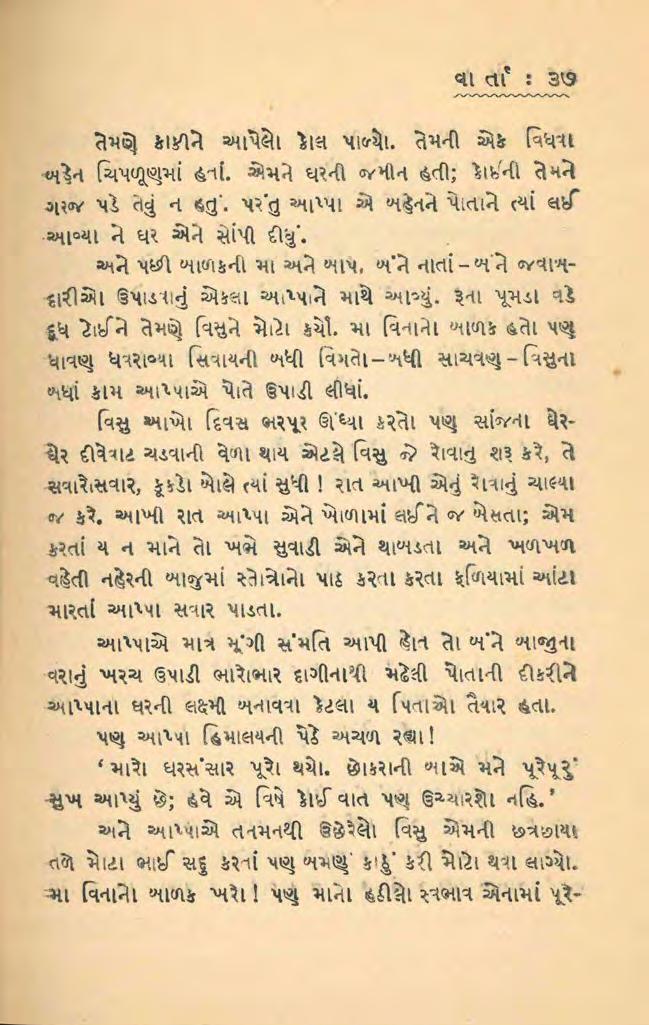 વાર્તા : ૩૭
તેમણે કાકીને આપેલો કોલ પાળ્યો. તેમની એક વિધવા
બહેન ચિપળૂણમાં હતાં. એમને ઘરની જમીન હતી; કોઈની તેમને
ગરજ પડે તેવું ન હતું. પરંતુ આપ્પા એ બહેનને પોતાને ત્યાં લઈ
આવ્યા ને ઘર એને સોંપી દીધું.
અને પછી બાળકની મા અને બાપ, બંને નાતાં – બંને જવાબ-
દારીઓ ઉપાડવાનું એકલા આપ્પાને માથે આવ્યું. રૂના પૂમડા વડે
દૂધ ટોઈને તેમણે વિસુને મોટો કર્યો. મા વિનાનો બાળક હતો પણ
ધાવણ ધવરાવ્યા સિવાયની બધી વિગતો – બધી સાચવણ – વિસુના
બધાં કામ આપ્પાએ પોતે ઉપાડી લીધાં.
વિસુ આખો દિવસ ભરપૂર ઊંઘ્યા કરતો પણ સાંજના ઘેર-
ઘેર દીવેવાટ ચડવાની વેળા થાય એટલે વિસુ જે રોવાનુ શરૂ કરે, તે
સવારોસવાર, કૂકડો બોલે ત્યાં સુધી ! રાત આખી એનું રોવાનું ચાલ્યા
જ કરે. આખી રાત આપ્પા એને ખોળામાં લઈને જ બેસતા; એમ
કરતાં ય ન માને તો ખભે સુવાડી એને થાબડતા અને ખળખળ
વહેતી નહેરની બાજુમાં સ્તોત્રોનો પાઠ કરતા કરતા ફળિયામાં આંટા
મારતાં આપ્પા સવાર પાડતા.
આપ્પાએ માત્ર મૂંગી સંમતિ આપી હોત તો બંને બાજુના
વરાનું ખરચ ઉપાડી ભારોભાર દાગીનાથી મઢેલી પોતાની દીકરીને
આપ્પાના ઘરની લક્ષ્મી બનાવવા કેટલા ય પિતાઓ તૈયાર હતા.
પણ આપ્પા હિમાલયની પેઠે અચળ રહ્યા !
‘ મારો ઘરસંસાર પૂરો થયો. છોકરાની બાએ મને પૂરેપૂરું
સુખ આપ્યું છે; હવે એ વિષે કોઈ વાત પણ ઉચ્ચારશો નહિ. ’
અને આપ્પાએ તનમનથી ઉછેરેલો વિસુ એમની છત્રછાયા
તળે મોટા ભાઈ સદ્દુ કરતાં પણ બમણું કાઠું કરી મોટો થવા લાગ્યો.
મા વિનાનો બાળક ખરો ! પણ માનો હઠીલો સ્વભાવ એનામાં પૂરે-